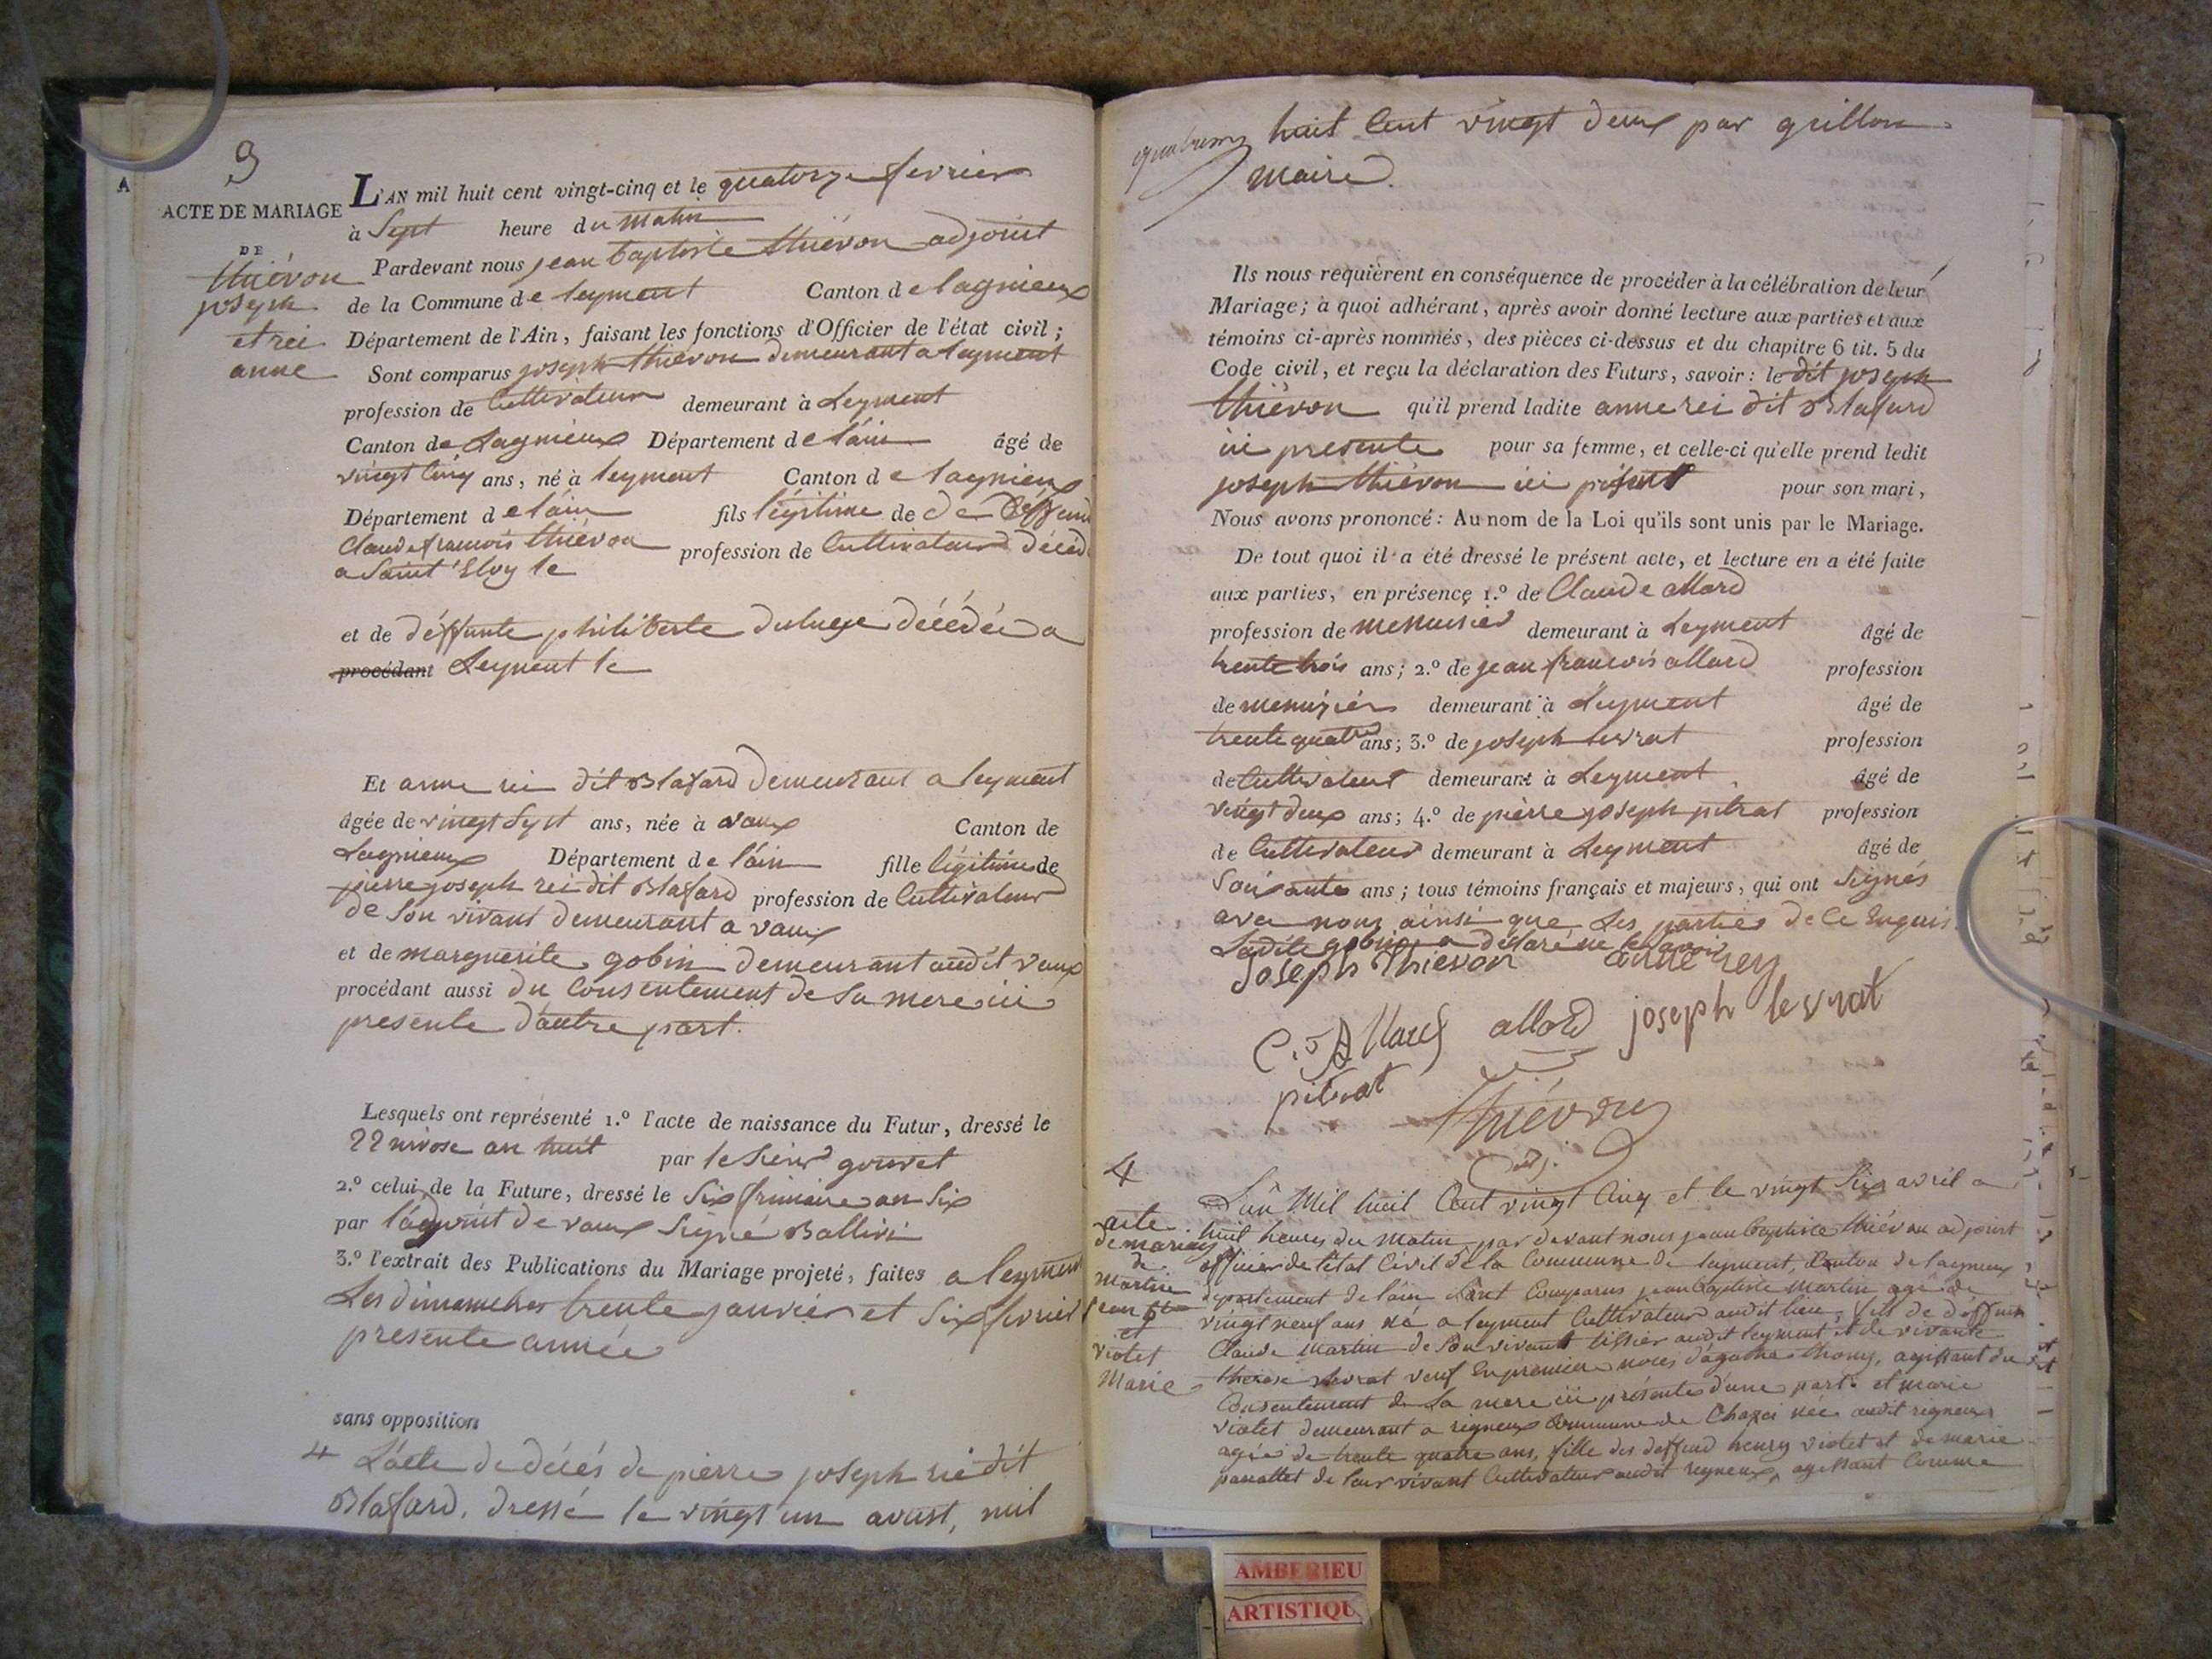 3
A
ACTE DE MARIAGE
DE
thiévon
joseph
et rei
anne
L'AN mil huit cent vingt-cinq et le quatorze fevrier
à Sept heure du matin
Pardevant nous jean baptiste thiévon adjoint
de la Commune de leyment Canton de lagnieux
Département de l'Ain, faisant les fonctions d'Officier de l'état civil;
Sont comparus joseph thiévon demeurant a leyment
profession de Cultivateur demeurant à Leyment
Canton de Lagnieux Département de l'áin âgé de
vingt Cinq ans, né à leyment Canton de lagnieux
Département de l'áin fils légitime de de déffunt
Claude francois thiévon profession de Cultivateur décédé
a Saint Eloy le
et de déffunte philiberte décédée a
procédant Leyment le
Et anne rei dit Blafard demeurant a leyment
âgée de vingt Sept ans, née à vaux Canton de
Lagnieux Département de l'áin fille légitime de
pierre joseph rei dit Blafard profession de Cultivateur
de Son vivant demeurant a vaux
et de marguerite gobin demeurant audit vaux
procédant aussi du Consentement de Sa mere ici
presente d'autre part.
Lesquels ont représenté 1.º l'acte de naissance du Futur, dressé le
22 nivose an huit par le Sieur gouvet
2.º celui de la Future, dressé le Six frimaire an Six
par l'adjoint de vaux Signé Ballivi
3.º l'extrait des Publications du Mariage projeté, faites a leyment
Les dimanches trente janvier et Six fevrier
presente année
sans opposition
4º L'acte de décés de pierre joseph rei dit
Blafard, dressé le vingt un avust, mil
huit Cent vingt deux par grillon
maire.
Ils nous requièrent en conséquence de procéder à la célébration de leur
Mariage; à quoi adhérant, après avoir donné lecture aux parties et aux
témoins ci-après nommés, des pièces ci-dessus et du chapitre 6 tit. 5 du
Code civil, et reçu la déclaration des Futurs, savoir: le dit joseph
thiévon qu'il prend ladite anne rei dit Blafard
ici presente pour sa femme, et celle-ci qu'elle prend ledit
joseph thiévon ici présent pour son mari,
Nous avons prononcé: Au nom de la Loi qu'ils sont unis par le Mariage.
De tout quoi il a été dressé le présent acte, et lecture en a été faite
aux parties, en présence 1.º de Claude allard
profession de menuisier demeurant à Leyment âgé de
trente trois ans; 2.º de jean francois allard profession
de menuisier demeurant à Leyment âgé de
trente quatre ans; 3.º de joseph levrat profession
de Cultivateur demeurant à Leyment âgé de
vingt deux ans; 4.º de pierre joseph pitrat profession
de Cultivateur demeurant à Leyment âgé de
Soixante ans; tous témoins français et majeurs, qui ont Signés
avec nous ainsi que Les parties de Ce Enquis
Ladite gobin a déclaré ne Savoir
Joseph Thievon anne rey
C. J. Allard allard joseph levrat
pitrat
thiévon
adj.
4
acte
de mariage
de
Martin
jean bte
et
violet
Marie
L'an Mil huit Cent vingt Cinq et le vingt Six avril a
huit heures du Matin par devant nous jean baptiste thiévon adjoint
officier de l'état Civil de la Commune de leyment, Canton de lagnieux
departement de l'ain Sont Comparus jean baptiste Martin agé de
vingt neuf ans né a leyment Cultivateur audit lieu, fils de déffunt
Claude Martin de Son vivant tissier audit leyment et de vivante
therese levrat veuf En premiere noces d'agathe thomy, agissant du
Consentement de Sa mere ici présente d'une part. et marie
violet demeurant a rigneux Commune de Chazei née audit rigneux
agée de trente quatre ans, fille des deffund henry violet et de marie
de leur vivant Cultivateur audit rigneux, agissant Comme
AMBERIEU
ARTISTIQU